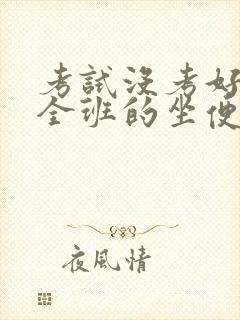 考試沒考好
全班的坐便
夜風情